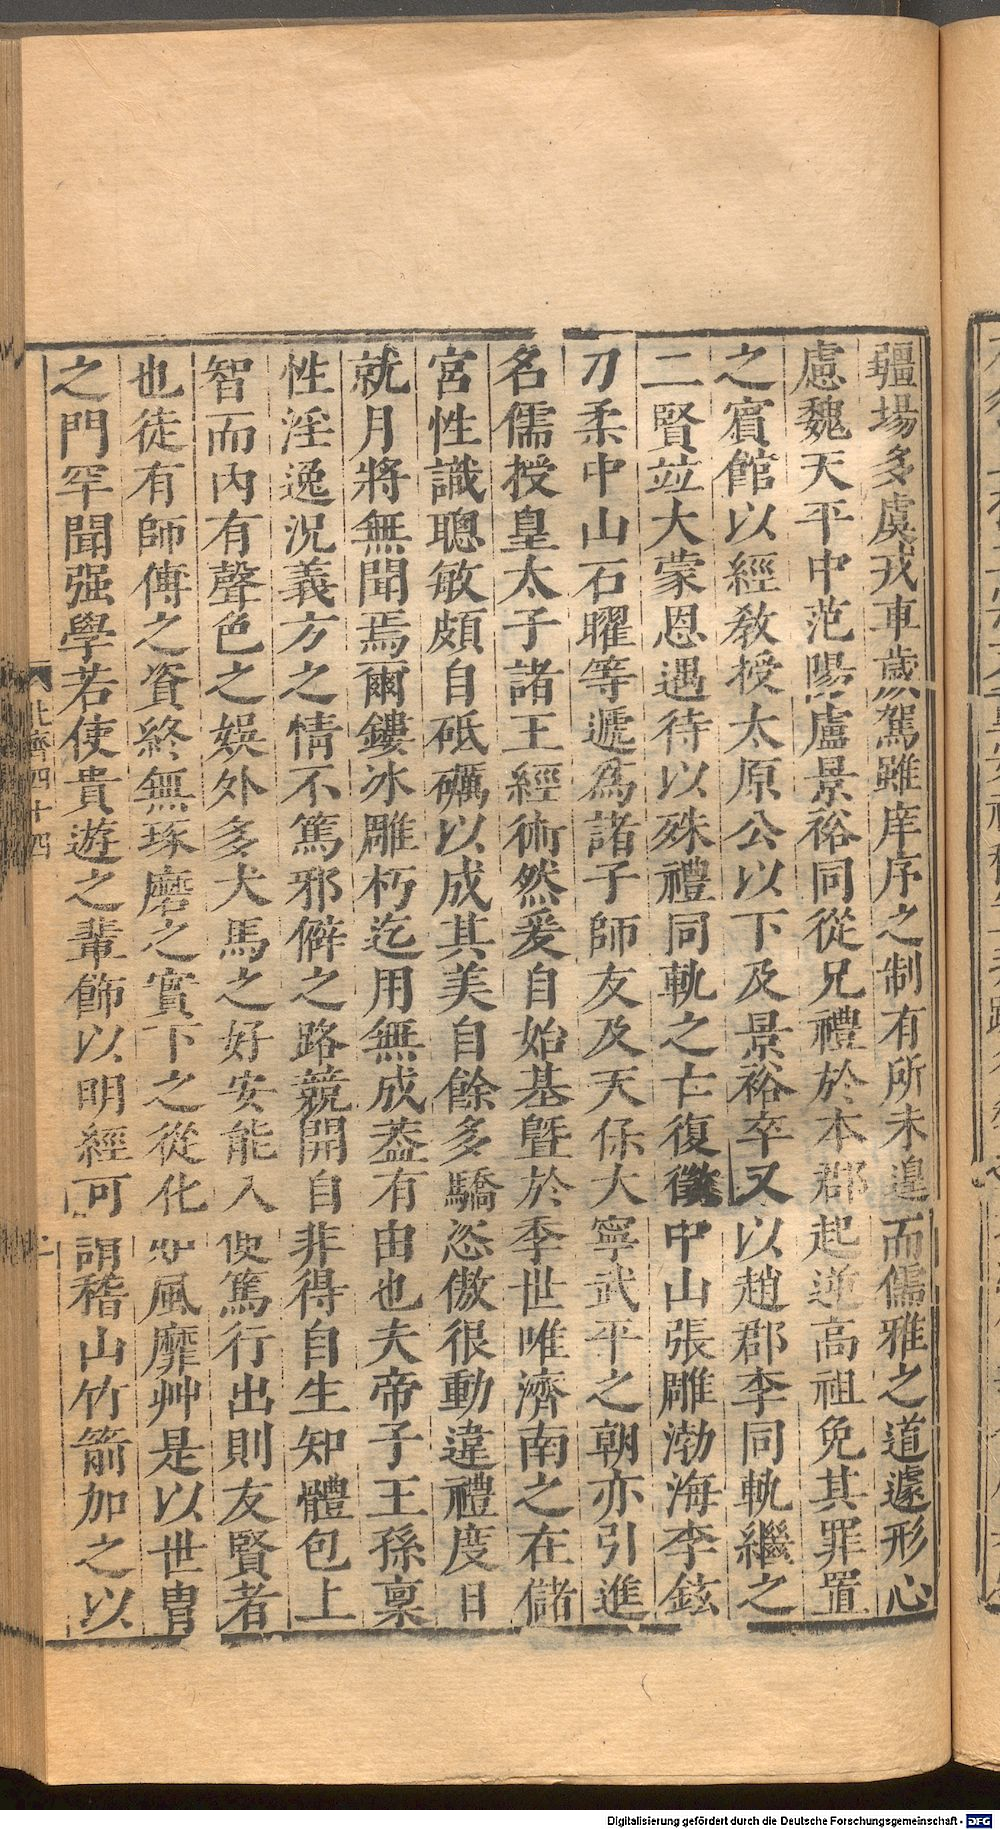 疆場多虞戎車歲駕雖庠序之制有所未遑而儒雅之道遽形心
慮魏天平中范陽盧景裕同從兄禮於本郡起逆高祖免其罪置
之賓館以經教授太原公以下及景裕卒又以趙郡李同軌繼之
二賢竝大蒙恩遇待以殊禮同軌之亡復徵中山張雕渤海李鉉
刁柔中山石曜等遞爲諸子師友及天保大寧武平之朝亦引進
名儒授皇太子諸王經術然爰自始基曁於季世唯濟南之在儲
宮性識聰敏頗自砥礪以成其美自餘多驕恣傲很動違禮度日
就月將無聞焉爾鏤冰雕朽迄用無成葢有由也夫帝子王孫稟
性淫逸况義方之情不篤邪僻之路競開自非得自生知體包上
智而內有聲色之娛外多犬馬之好安能入便篤行出則友賢者
也徒有師傅之資終無琢磨之實下之從化如風靡艸是以世冑
之門罕聞强學若使貴遊之輩飾以明經可謂稽山竹箭加之以
北齊四十四
Digitalisierung gefördert durch die Deutsche Forschungsgemeinschaft - DFG